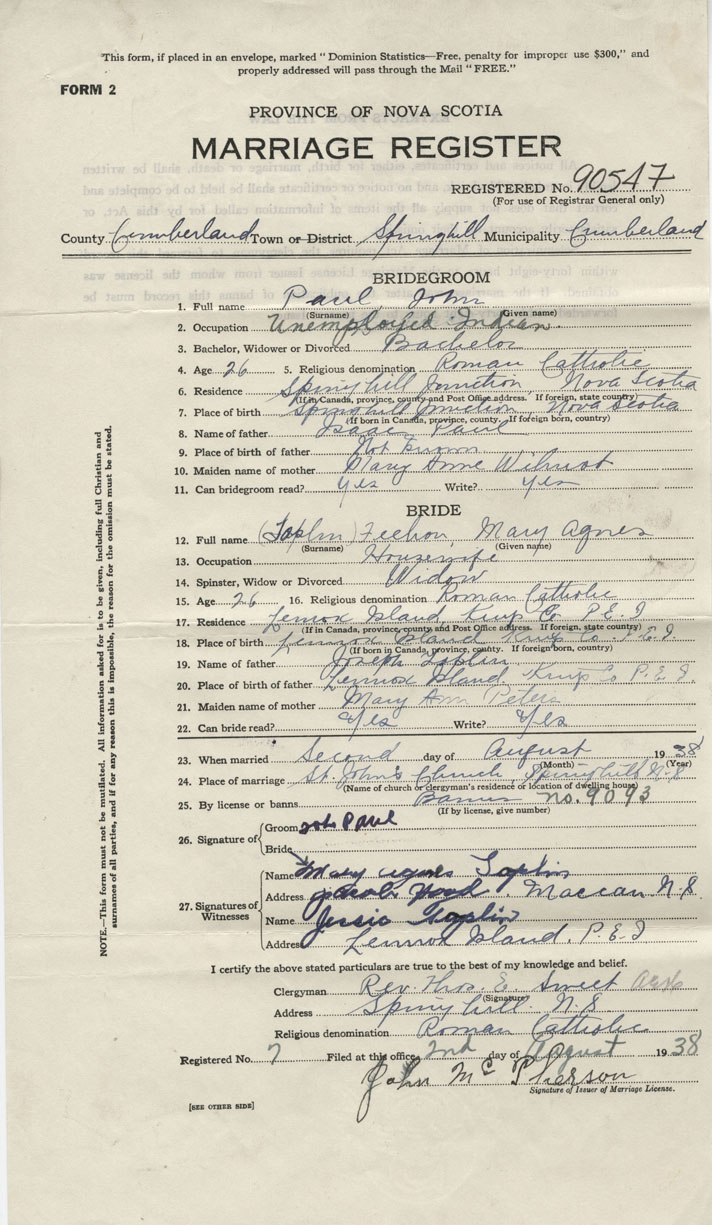 This form, if placed in an envelope, marked "Dominion Statistics—Free, penalty for improper use $300," and
properly addressed will pass through the Mail "FREE."
FORM 2
PROVINCE OF NOVA SCOTIA
MARRIAGE REGISTER
REGISTERED No. 90547
(For use of Registrar General only)
County Cumberland Town or District Springhill Municipality Cumberland
BRIDEGROOM
1. Full name Paul, John
(Surname) (Given name)
2. Occupation Unemployed Indian
3. Bachelor, Widower or Divorced Bachelor
4. Age 26 5. Religious denomination Roman Catholic
6. Residence Springhill Junction Nova Scotia
(If in Canada, province, county and Post Office address. If foreign, state country)
7. Place of birth Springhill Junction Nova Scotia
(If born in Canada, province, county. If foreign born, country)
8. Name of father Isaac Paul
9. Place of birth of father Not known
10. Maiden name of mother Mary Anne Wilmot
11. Can bridegroom read? Yes Write? Yes
BRIDE
12. Full name (Toplin) Mary Agnes
(Surname) (Given name)
13. Occupation Housewife
14. Spinster, Widow or Divorced Widow
15. Age 26 16. Religious denomination Roman Catholic
17. Residence Lennox Island, Kings Co. P.E.I
(If in Canada, province, county, and Post Office address. If foreign, state country)
18. Place of birth Lennox Island Kings Co. P.E.I.
(If born in Canada, province, county. If foreign born, country)
19. Name of father Joseph Toplin
20. Place of birth of father Lennox Island, Kings Co P.E.I.
21. Maiden name of mother Mary Ann Peters
22. Can bride read? Yes Write? Yes
23. When married Second day of August 1938
(Month) (Year)
24. Place of marriage St. John's Church, Springhill N.S
(Name of church or clergyman's residence or location of dwelling house)
25. By license or banns Banns no. 9093
(If by license, give number)
26. Signature of
Groom John Paul
Bride
27. Signatures of Witnesses
Name Mary Agnes Toplin
Address Jacob Maccan N.S.
Name Jessie Toplin
Address Lennox Island, P.E.I
I certify the above stated particulars are true to the best of my knowledge and belief.
Clergyman Rev. Thos. E. Sweet
(Signature)
Address Springhill N.S.
Religious denomination Roman Catholic
Registered No. 7 Filed at this office 2nd day of August 1938
John McPherson
Signature of Issuer of Marriage License.
[SEE OTHER SIDE]
NOTE.—This form must not be mutilated. All information asked for is to be given, including full Christian and
surnames of all parties, and if for any reason this is impossible, the reason for the omission must be stated.